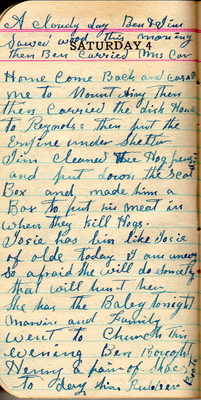 A Cloudy day Ben & Jim
Sawed wood this morning
SATURDAY 4
then Ben Carried Mrs Car
Home Come Back and
me to Mount Airy then
then Carried the disk Home
to Reynolds: then put the
Engine under Shelter
Jim Cleaned the Hog pens
and put down the Scal
Box and made him a
Box to put his meat in
when they Kill Hogs.
Josie has bin like Josie
of olde today I am uneasy
so afraid she will do somethg
that will hurt her
She has the Baby tonight
Marvin and Family
went to Church this
evening Ben Bought
Henry a pair of Shoes
to day him Rubber